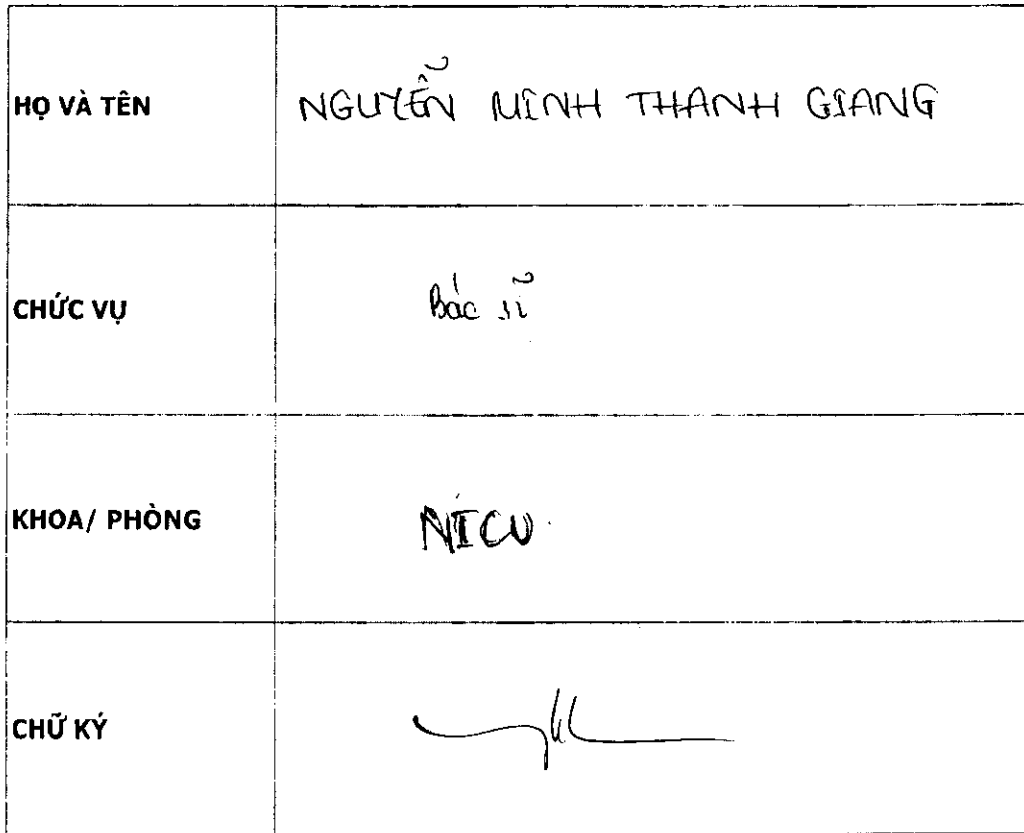 HỌ VÀ TÊN NGUYỄN MINH THANH GIANG
CHỨC VỤ Bác sĩ
KHOA/ PHÒNG NICU
CHỮ KÝ